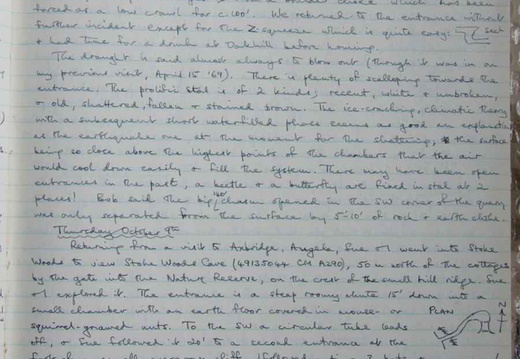 forced as a low crawl for c.100'. We returned to the entrance without
further incident except for the Z-squeeze which is quite easy: sect
& had time for a drink at Oakhill before homing.
The draught is said almost always to blow out (though it was in on
my previous visit, April 15 '69). There is plenty of scalloping towards the
entrance. The prolific stal is of 2 kinds; recent, white & unbroken,
& old, shattered, fallen & stained brown. The ice-cracking, climatic theory
with a subsequent short waterfilled phase seems as good an explanation
as the earthquake one at the moment for the shattering, the surface
being so close above the highest points of the chambers that the air
would cool down easily & fill the system. There may have been open
entrances in the past, a beetle & a butterfly are fixed in stal at 2
places! Bob said the big chasm opened in the SW corner of the quarry
was only separated from the surface by 5-10' of rock & earth choke.
Thursday October 9th
Returning from a visit to Axbridge, Angela, Sue & I went into Stoke
Woods to view Stoke Woods Cave (49135044 CM A290), 50 m north of the cottages
by the gate into the Nature Reserve, on the crest of the small hill ridge. Sue
& I explored it. The entrance is a steep roomy chute 15' down into a
small chamber with an earth floor covered in mouse- or PLAN N
squirrel-gnawed nuts. To the SW a circular tube leads
off, & Sue followed it 20' to a second entrance at the